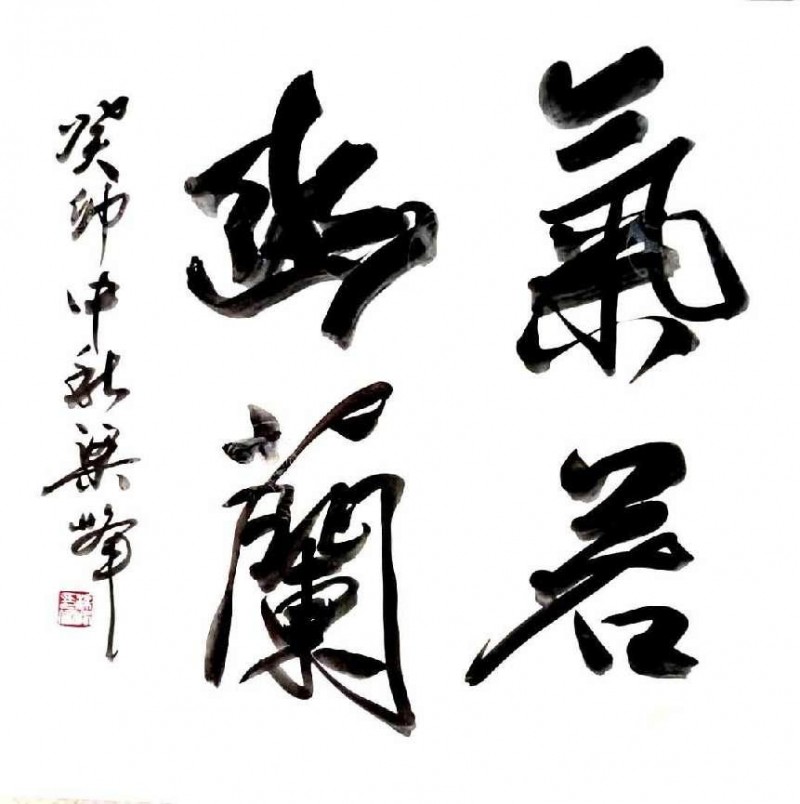 氣若
幽蘭
癸卯中秋梁峰